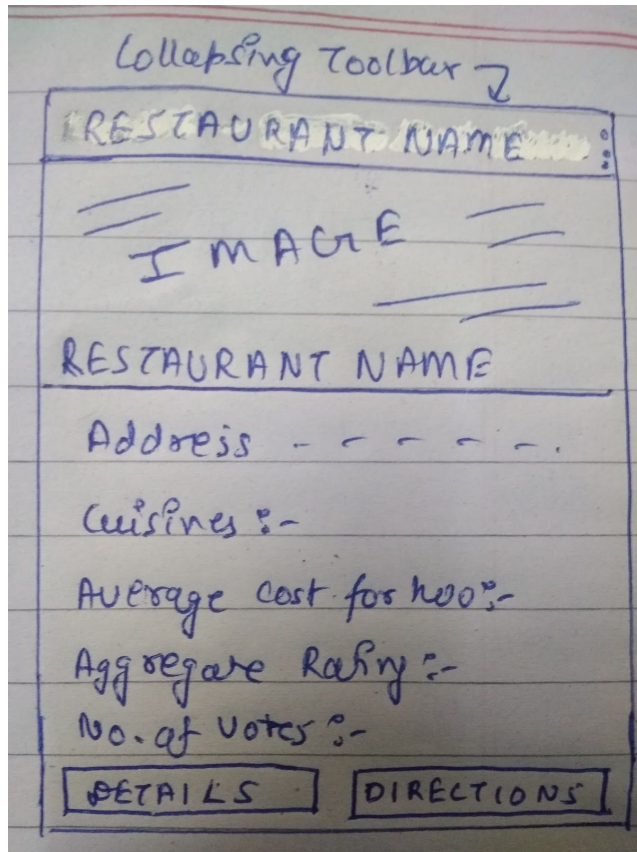 Collapsing Toolbar
RESTAURANT NAME
IMAGE
RESTAURANT NAME
Address - - - - - -.
Cuisines :-
Average cost for two :-
Aggregate Rating :-
No. of Votes :-
DETAILS
DIRECTIONS